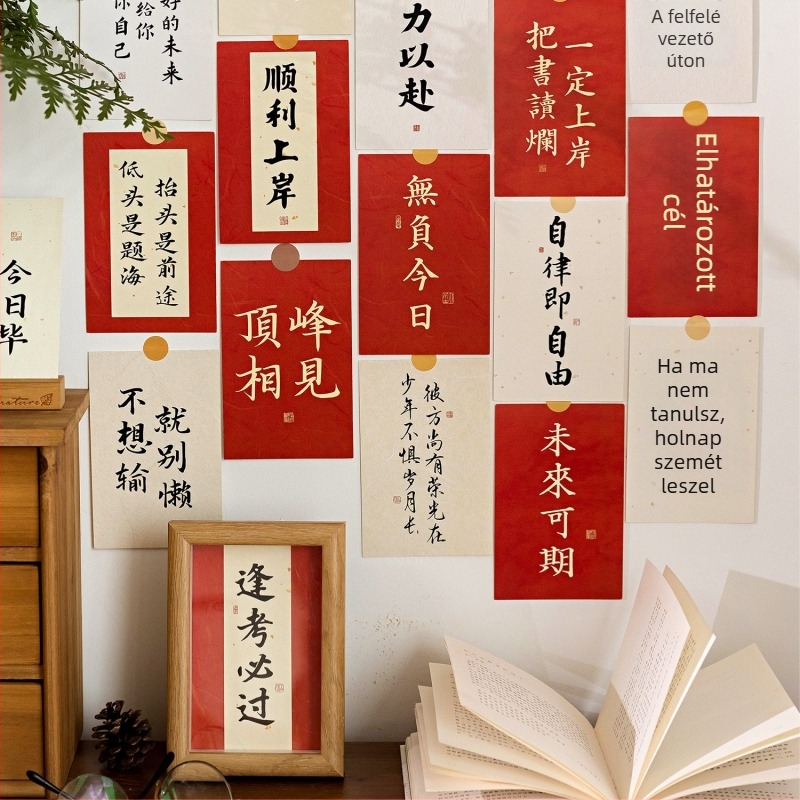 好的未来
给你
你自己
力以赴
一定上岸
把書讀爛
A felfelé
vezető
úton
顺利上岸
抬头是前途
低头是题海
無負今日
自律即自由
Elhatározott
cél
今日
毕
峰見
頂相
就别懒
不想输
彼方尚有荣光在
少年不惧岁月长
未來可期
Ha ma
nem
tanulsz,
holnap
szemét
leszel
逢考必过